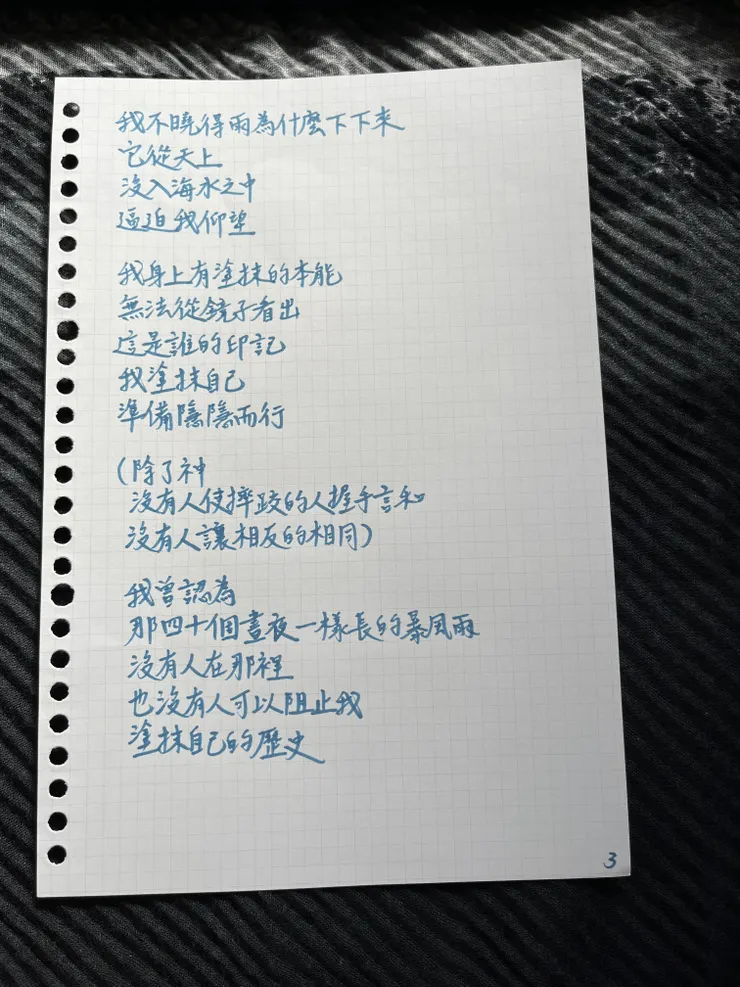 我不曉得雨為什麼下下來
它從天上
沒入海水之中
逼迫我仰望
我身上有塗抹的本能
無法從鏡子看出
這是誰的印記
我塗抹自己
準備隱隱而行
(除了神
沒有人使摔跤的人握手言和
沒有人讓相反的相同)
我曾認為
那四十個晝夜一樣長的暴風雨
沒有人在那裡
也沒有人可以阻止我
塗抹自己的歷史
3